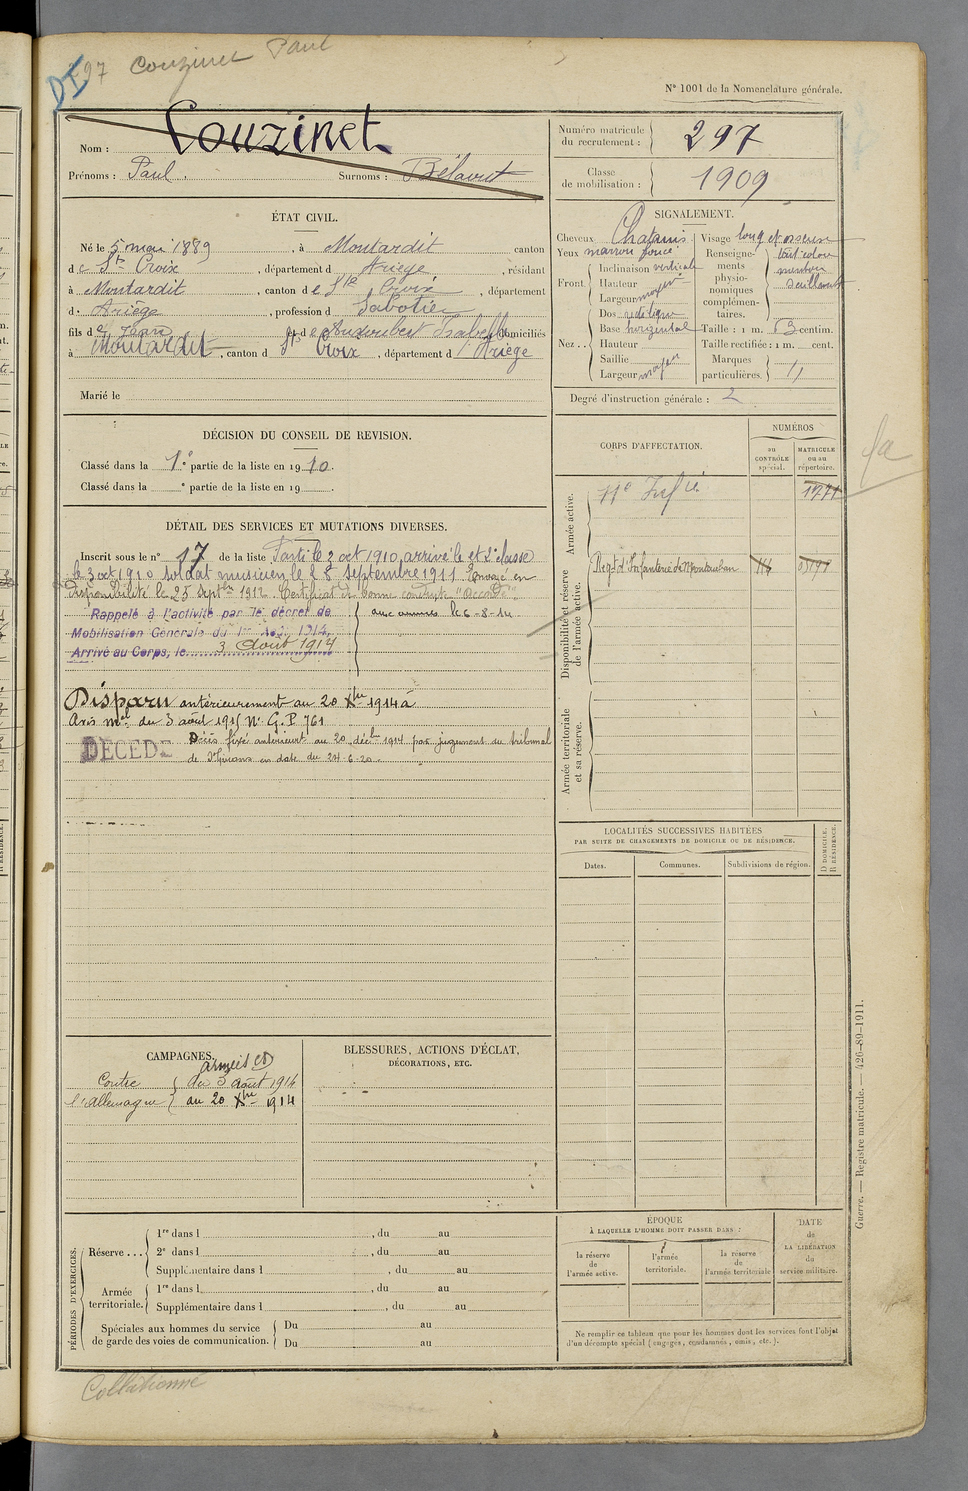 297 Couzinet Paul
DI
N° 1001 de la Nomenclature générale.
Nom : Couzinet
Prénoms : Paul. Surnoms :
Numéro matricule du recrutement : 297
Classe de mobilisation : 1909
ÉTAT CIVIL.
Né le 5 mai 1889, à Montardit canton
de Ste Croix, département d Ariège, résidant
à Montardit, canton de Ste Croix, département
d. Ariège, profession d Sabotier
fils de Jean et de Audoubert Isabelle domiciliés
à Montardit, canton d Ste Croix, département d l'Ariège
Marié le
SIGNALEMENT.
Cheveux Chatains
Yeux marron foncé
Front. Inclinaison verticale
Hauteur moyen
Largeur moyen
Nez . . Dos rectiligne
Base horizontal
Hauteur
Saillie
Largeur moyen
Visage long et osseux
Renseignements physionomiques complémentaires. teint coloré menton saillant
Taille : 1 m. 63 centim.
Taille rectifiée : 1 m. cent.
Marques particulières. 11
Degré d'instruction générale : 2
DÉCISION DU CONSEIL DE REVISION.
Classé dans la 1e partie de la liste en 1910.
Classé dans la e partie de la liste en 19 .
DÉTAIL DES SERVICES ET MUTATIONS DIVERSES.
Inscrit sous le n° 17 de la liste Parti le 2 oct 1910, arrivé le et 2e classe
le 3 oct 1910 soldat musicien le 28 septembre 1911 Envoyé en
disponibilité le 25 septbre 1912. Certificat de bonne conduite "Accordé".
Rappelé à l'activité par le décret de aux armées le 6-8-14
Mobilisation Générale du 1er Août 1914.
Arrivé au Corps, le 3 Août 1914
Disparu antérieurement au 20 Xbre 1914 à
Avis mel du 3 août 1915 N° G.P 761
DÉCÉDÉ Décès fixé antérieurt au 20 décbre 1914 par jugement du tribunal
de St Girons en date du 24-6-20.
CORPS D'AFFECTATION.
NUMÉROS
au CONTRÔLE spécial.
MATRICULE ou au répertoire.
Armée active.
11e Infie
1971
Disponibilité et réserve de l'armée active.
Regt d'Infanterie de Montauban
Armée territoriale et sa réserve.
fa
LOCALITÉS SUCCESSIVES HABITÉES
PAR SUITE DE CHANGEMENTS DE DOMICILE OU DE RÉSIDENCE.
Dates. Communes. Subdivisions de région. D DOMICILE. R RÉSIDENCE.
CAMPAGNES.
armées CD
Contre du 3 août 1914
l'Allemagne au 20 Xbre 1914
BLESSURES, ACTIONS D'ÉCLAT,
DÉCORATIONS, ETC.
PÉRIODES D'EXERCICES.
Réserve . . . 1re dans l , du au
2e dans l , du au
Supplémentaire dans l , du au
Armée territoriale. 1re dans l , du au
Supplémentaire dans l , du au
Spéciales aux hommes du service Du au
de garde des voies de communication. Du au
ÉPOQUE
À LAQUELLE L'HOMME DOIT PASSER DANS :
la réserve de l'armée active.
l'armée territoriale.
la réserve de l'armée territoriale
DATE de LA LIBÉRATION du service militaire.
Ne remplir ce tableau que pour les hommes dont les services font l'objet
d'un décompte spécial (engagés, condamnés, omis, etc.).
Guerre. — Registre matricule. — 426-89-1911.
Collationné